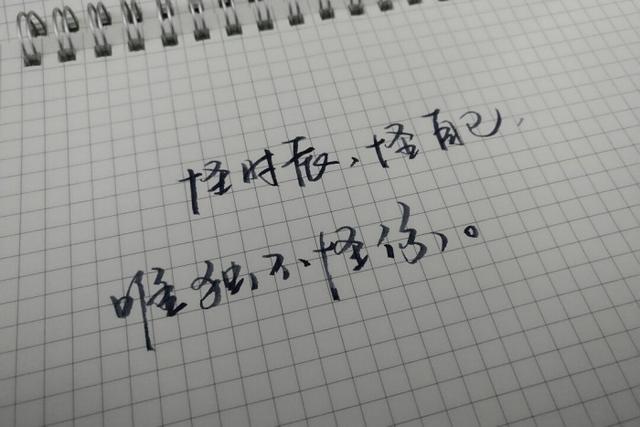 怪时辰、怪自己，
唯独不怪你。